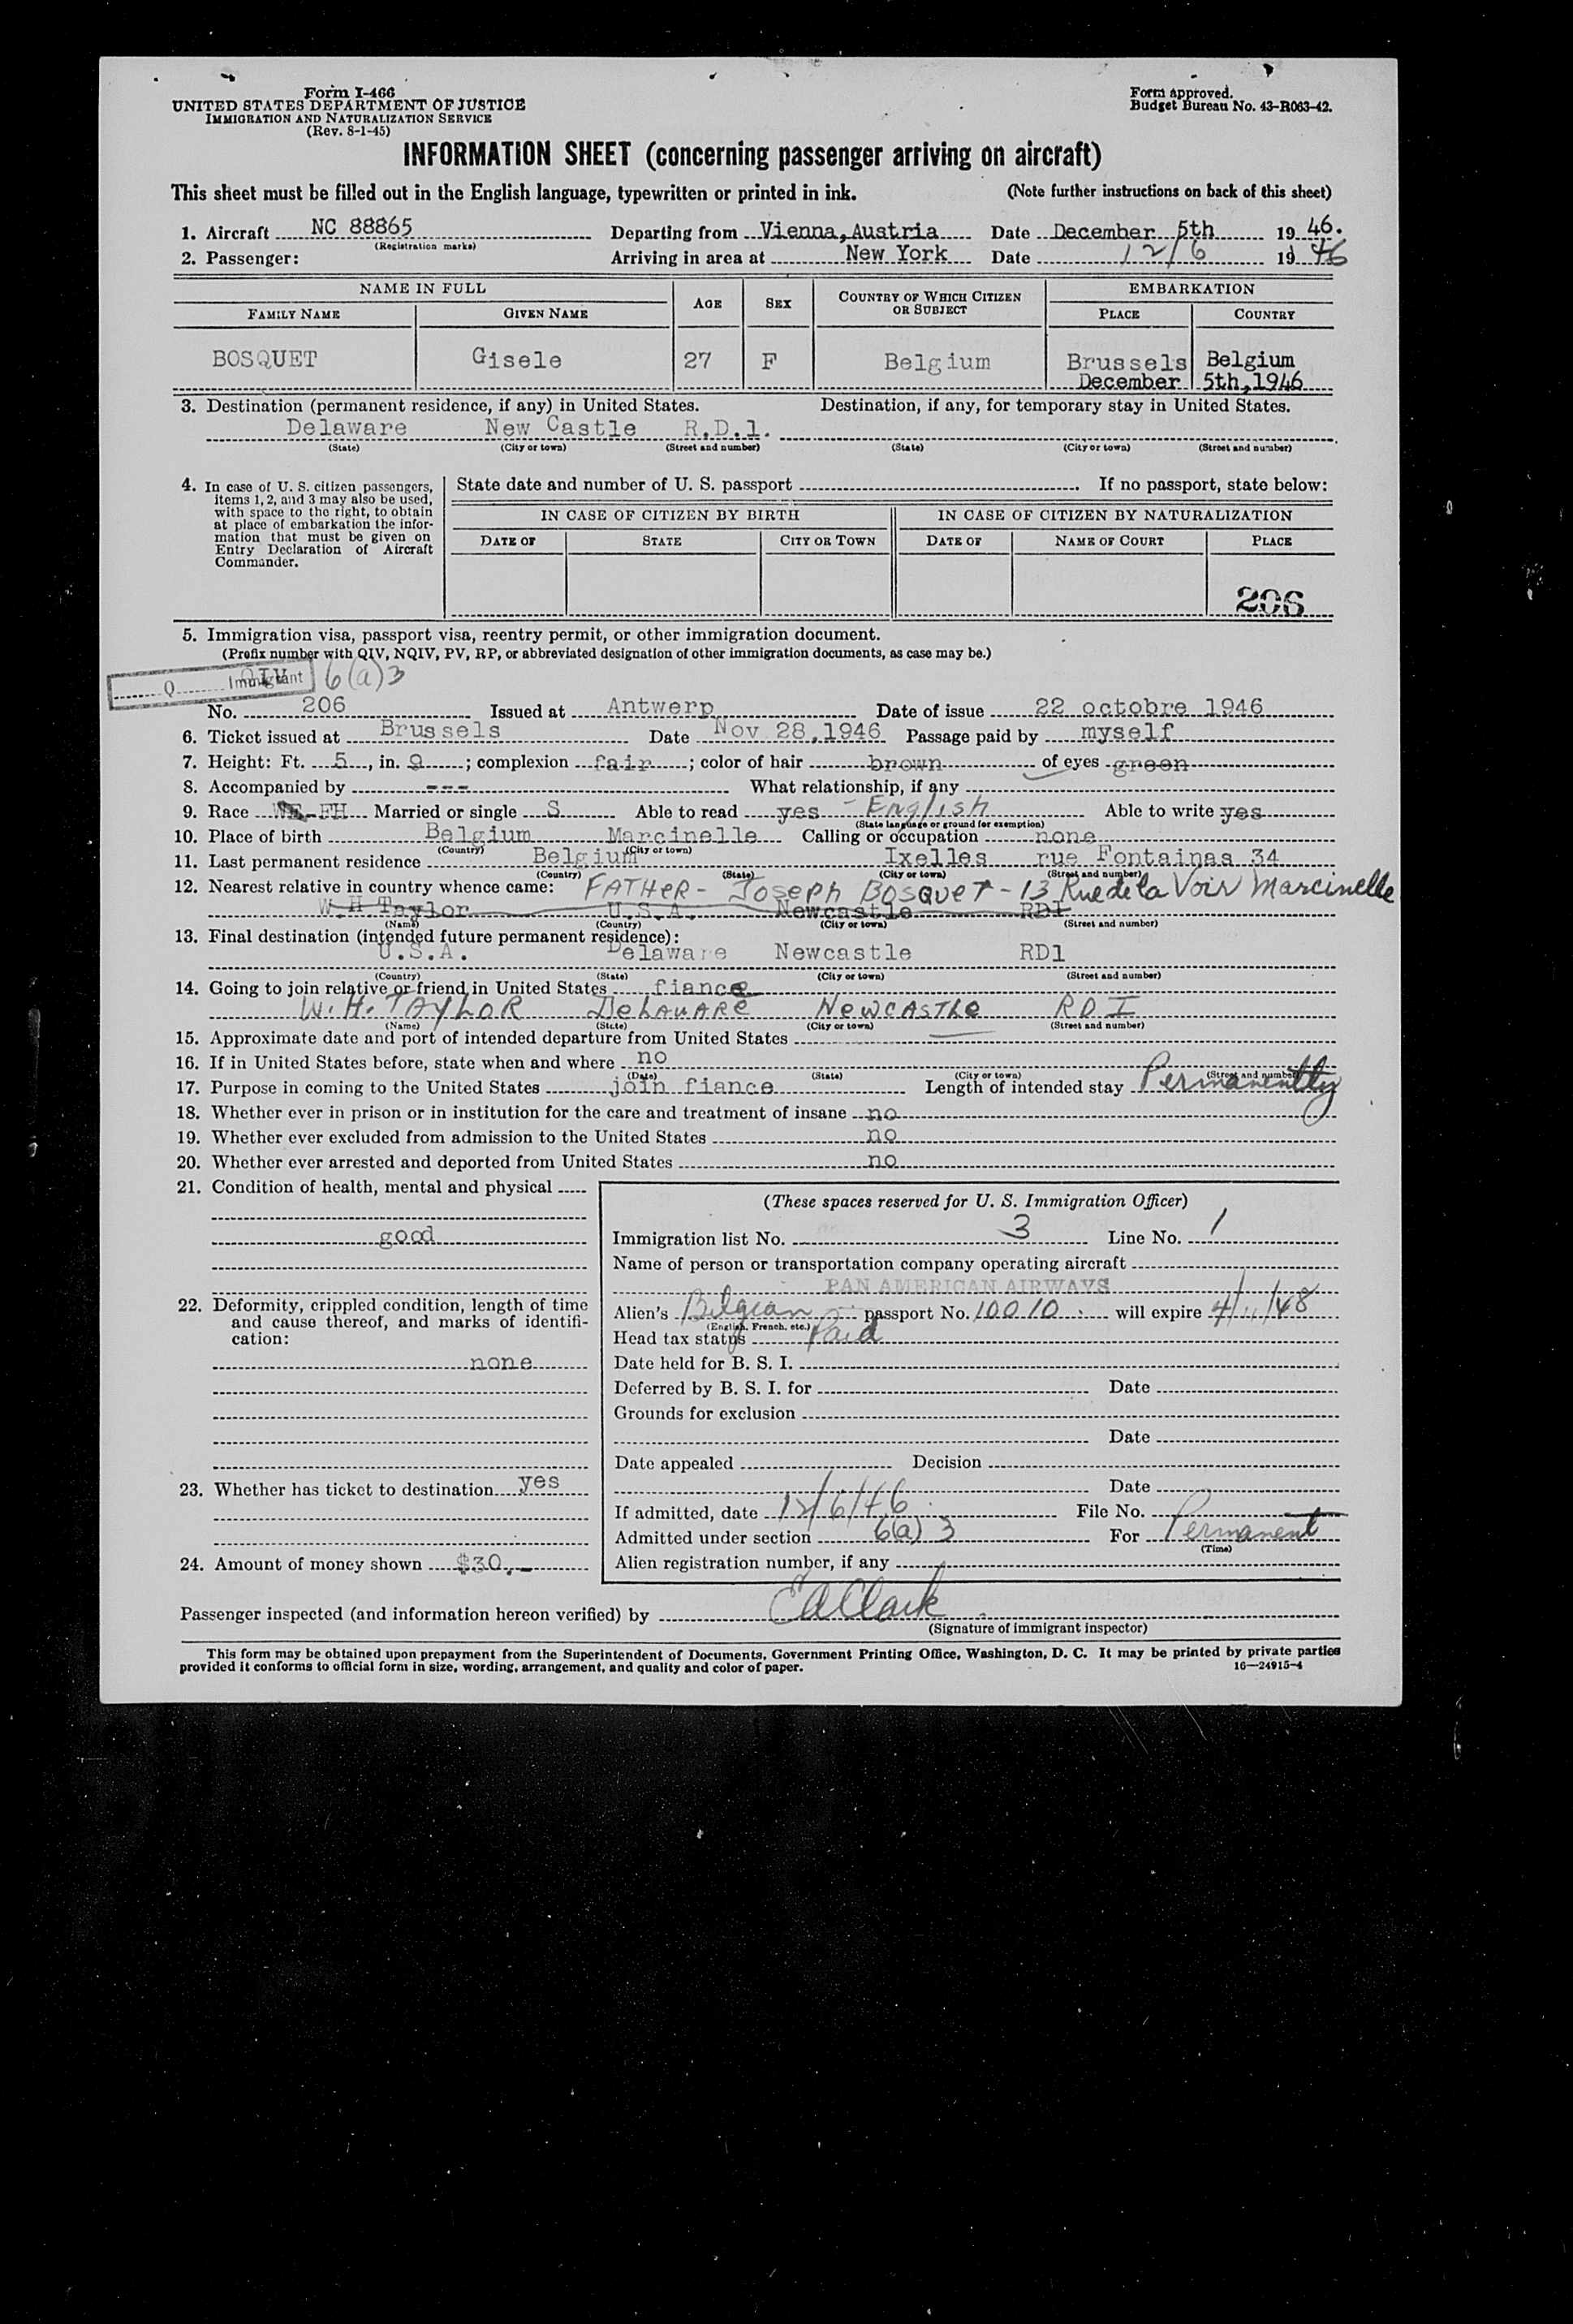 Form I-466
UNITED STATES DEPARTMENT OF JUSTICE
IMMIGRATION AND NATURALIZATION SERVICE
(Rev. 8-1-45)
Form approved.
Budget Bureau No. 43-R063-42.
INFORMATION SHEET (concerning passenger arriving on aircraft)
This sheet must be filled out in the English language, typewritten or printed in ink. (Note further instructions on back of this sheet)
1. Aircraft NC 88865 Departing from Vienna, Austria Date December 5th 1946.
(Registration marks)
2. Passenger: Arriving in area at New York Date 12/6 1946
NAME IN FULL AGE SEX COUNTRY OF WHICH CITIZEN OR SUBJECT EMBARKATION
FAMILY NAME GIVEN NAME PLACE COUNTRY
BOSQUET Gisele 27 F Belgium Brussels Belgium
December 5th,1946
3. Destination (permanent residence, if any) in United States. Destination, if any, for temporary stay in United States.
Delaware New Castle R.D.1.
(State) (City or town) (Street and number) (State) (City or town) (Street and number)
4. In case of U. S. citizen passengers, items 1, 2, and 3 may also be used, with space to the right, to obtain at place of embarkation the information that must be given on Entry Declaration of Aircraft Commander.
State date and number of U. S. passport If no passport, state below:
IN CASE OF CITIZEN BY BIRTH IN CASE OF CITIZEN BY NATURALIZATION
DATE OF STATE CITY OR TOWN DATE OF NAME OF COURT PLACE
206
5. Immigration visa, passport visa, reentry permit, or other immigration document.
(Prefix number with QIV, NQIV, PV, RP, or abbreviated designation of other immigration documents, as case may be.)
Q Immigrant QIV 6(a)3
No. 206 Issued at Antwerp Date of issue 22 octobre 1946
6. Ticket issued at Brussels Date Nov 28,1946 Passage paid by myself
7. Height: Ft. 5, in. 9; complexion fair; color of hair brown of eyes green
8. Accompanied by --- What relationship, if any
9. Race FH Married or single S Able to read yes - English Able to write yes
(State language or ground for exemption)
10. Place of birth Belgium Marcinelle Calling or occupation none
(Country) (City or town)
11. Last permanent residence Belgium Ixelles rue Fontainas 34
(Country) (State) (City or town) (Street and number)
12. Nearest relative in country whence came: FATHER - Joseph BOSQUET - 13 Rue de la Voir Marcinelle
W.H Taylor U.S.A. Newcastle RD1
(Name) (Country) (City or town) (Street and number)
13. Final destination (intended future permanent residence):
U.S.A. Delaware Newcastle RD1
(Country) (State) (City or town) (Street and number)
14. Going to join relative or friend in United States fiance
W. H. TAYLOR DELAWARE NEWCASTLE RD I
(Name) (State) (City or town) (Street and number)
15. Approximate date and port of intended departure from United States
16. If in United States before, state when and where no
(Date) (State) (City or town) (Street and number)
17. Purpose in coming to the United States join fiance Length of intended stay Permanently
18. Whether ever in prison or in institution for the care and treatment of insane no
19. Whether ever excluded from admission to the United States no
20. Whether ever arrested and deported from United States no
21. Condition of health, mental and physical
good
22. Deformity, crippled condition, length of time and cause thereof, and marks of identification:
none
23. Whether has ticket to destination yes
24. Amount of money shown $30.-
(These spaces reserved for U. S. Immigration Officer)
Immigration list No. 3 Line No. 1
Name of person or transportation company operating aircraft
PAN AMERICAN AIRWAYS
Alien's Belgian passport No. 10010 will expire 4/11/48
(English, French, etc.)
Head tax status Paid
Date held for B. S. I.
Deferred by B. S. I. for Date
Grounds for exclusion
Date
Date appealed Decision
Date
If admitted, date 12/6/46 File No.
Admitted under section 6(a) 3 For Permanent
(Time)
Alien registration number, if any
Passenger inspected (and information hereon verified) by EA Clark
(Signature of immigrant inspector)
This form may be obtained upon prepayment from the Superintendent of Documents, Government Printing Office, Washington, D. C. It may be printed by private parties
provided it conforms to official form in size, wording, arrangement, and quality and color of paper. 16—24915-4